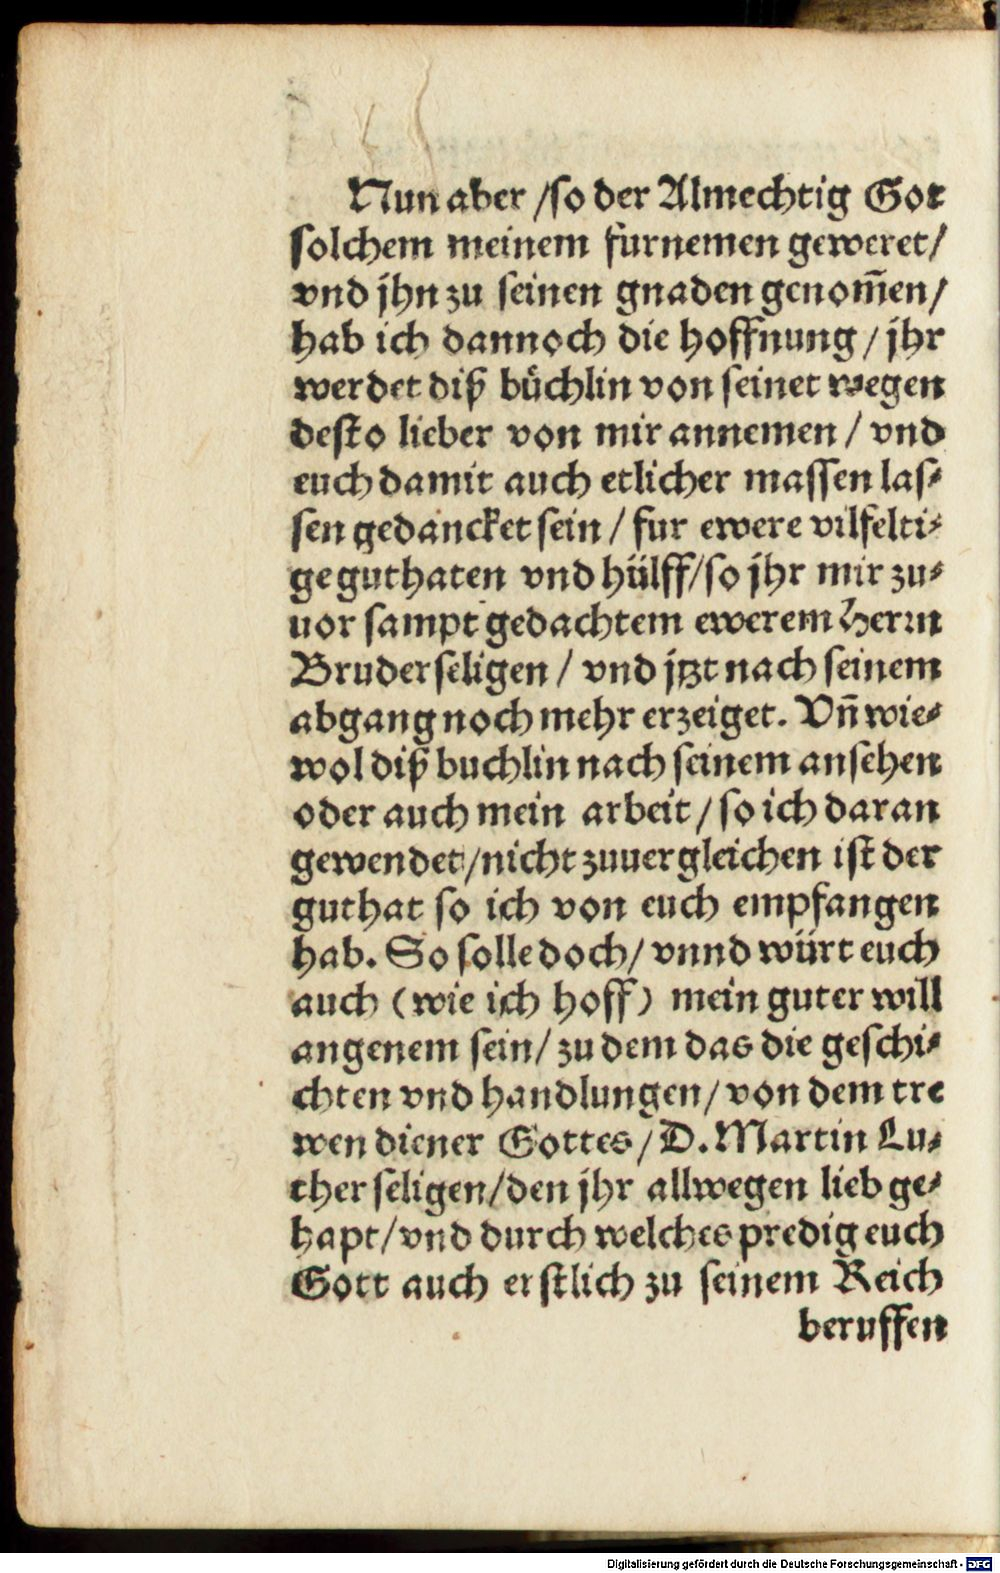 Nun aber /so der Almechtig Got
solchem meinem furnemen geweret/
vnd jhn zu seinen gnaden genom̃en/
hab ich dannoch die hoffnung / jhr
werdet diß bůchlin von seinet wegen
desto lieber von mir annemen / vnd
euch damit auch etlicher massen las⸗
sen gedancket sein / fur ewere vilfelti⸗
ge guthaten vnd hülff/so jhr mir zu⸗
uor sampt gedachtem ewerem Herrn
Bruder seligen / vnd jtzt nach seinem
abgang noch mehr erzeiget. Vñ wie⸗
wol diß buchlin nach seinem ansehen
oder auch mein arbeit / so ich daran
gewendet/nicht zuuergleichen ist der
guthat so ich von euch empfangen
hab. So solle doch/ vnnd würt euch
auch (wie ich hoff) mein guter will
angenem sein/ zu dem das die geschi⸗
chten vnd handlungen/ von dem tre
wen diener Gottes/ D. Martin Lu⸗
ther seligen/den jhr allwegen lieb ge⸗
hapt/ vnd durch welches predig euch
Gott auch erstlich zu seinem Reich
beruffen
Digitalisierung gefördert durch die Deutsche Forschungsgemeinschaft - DFG